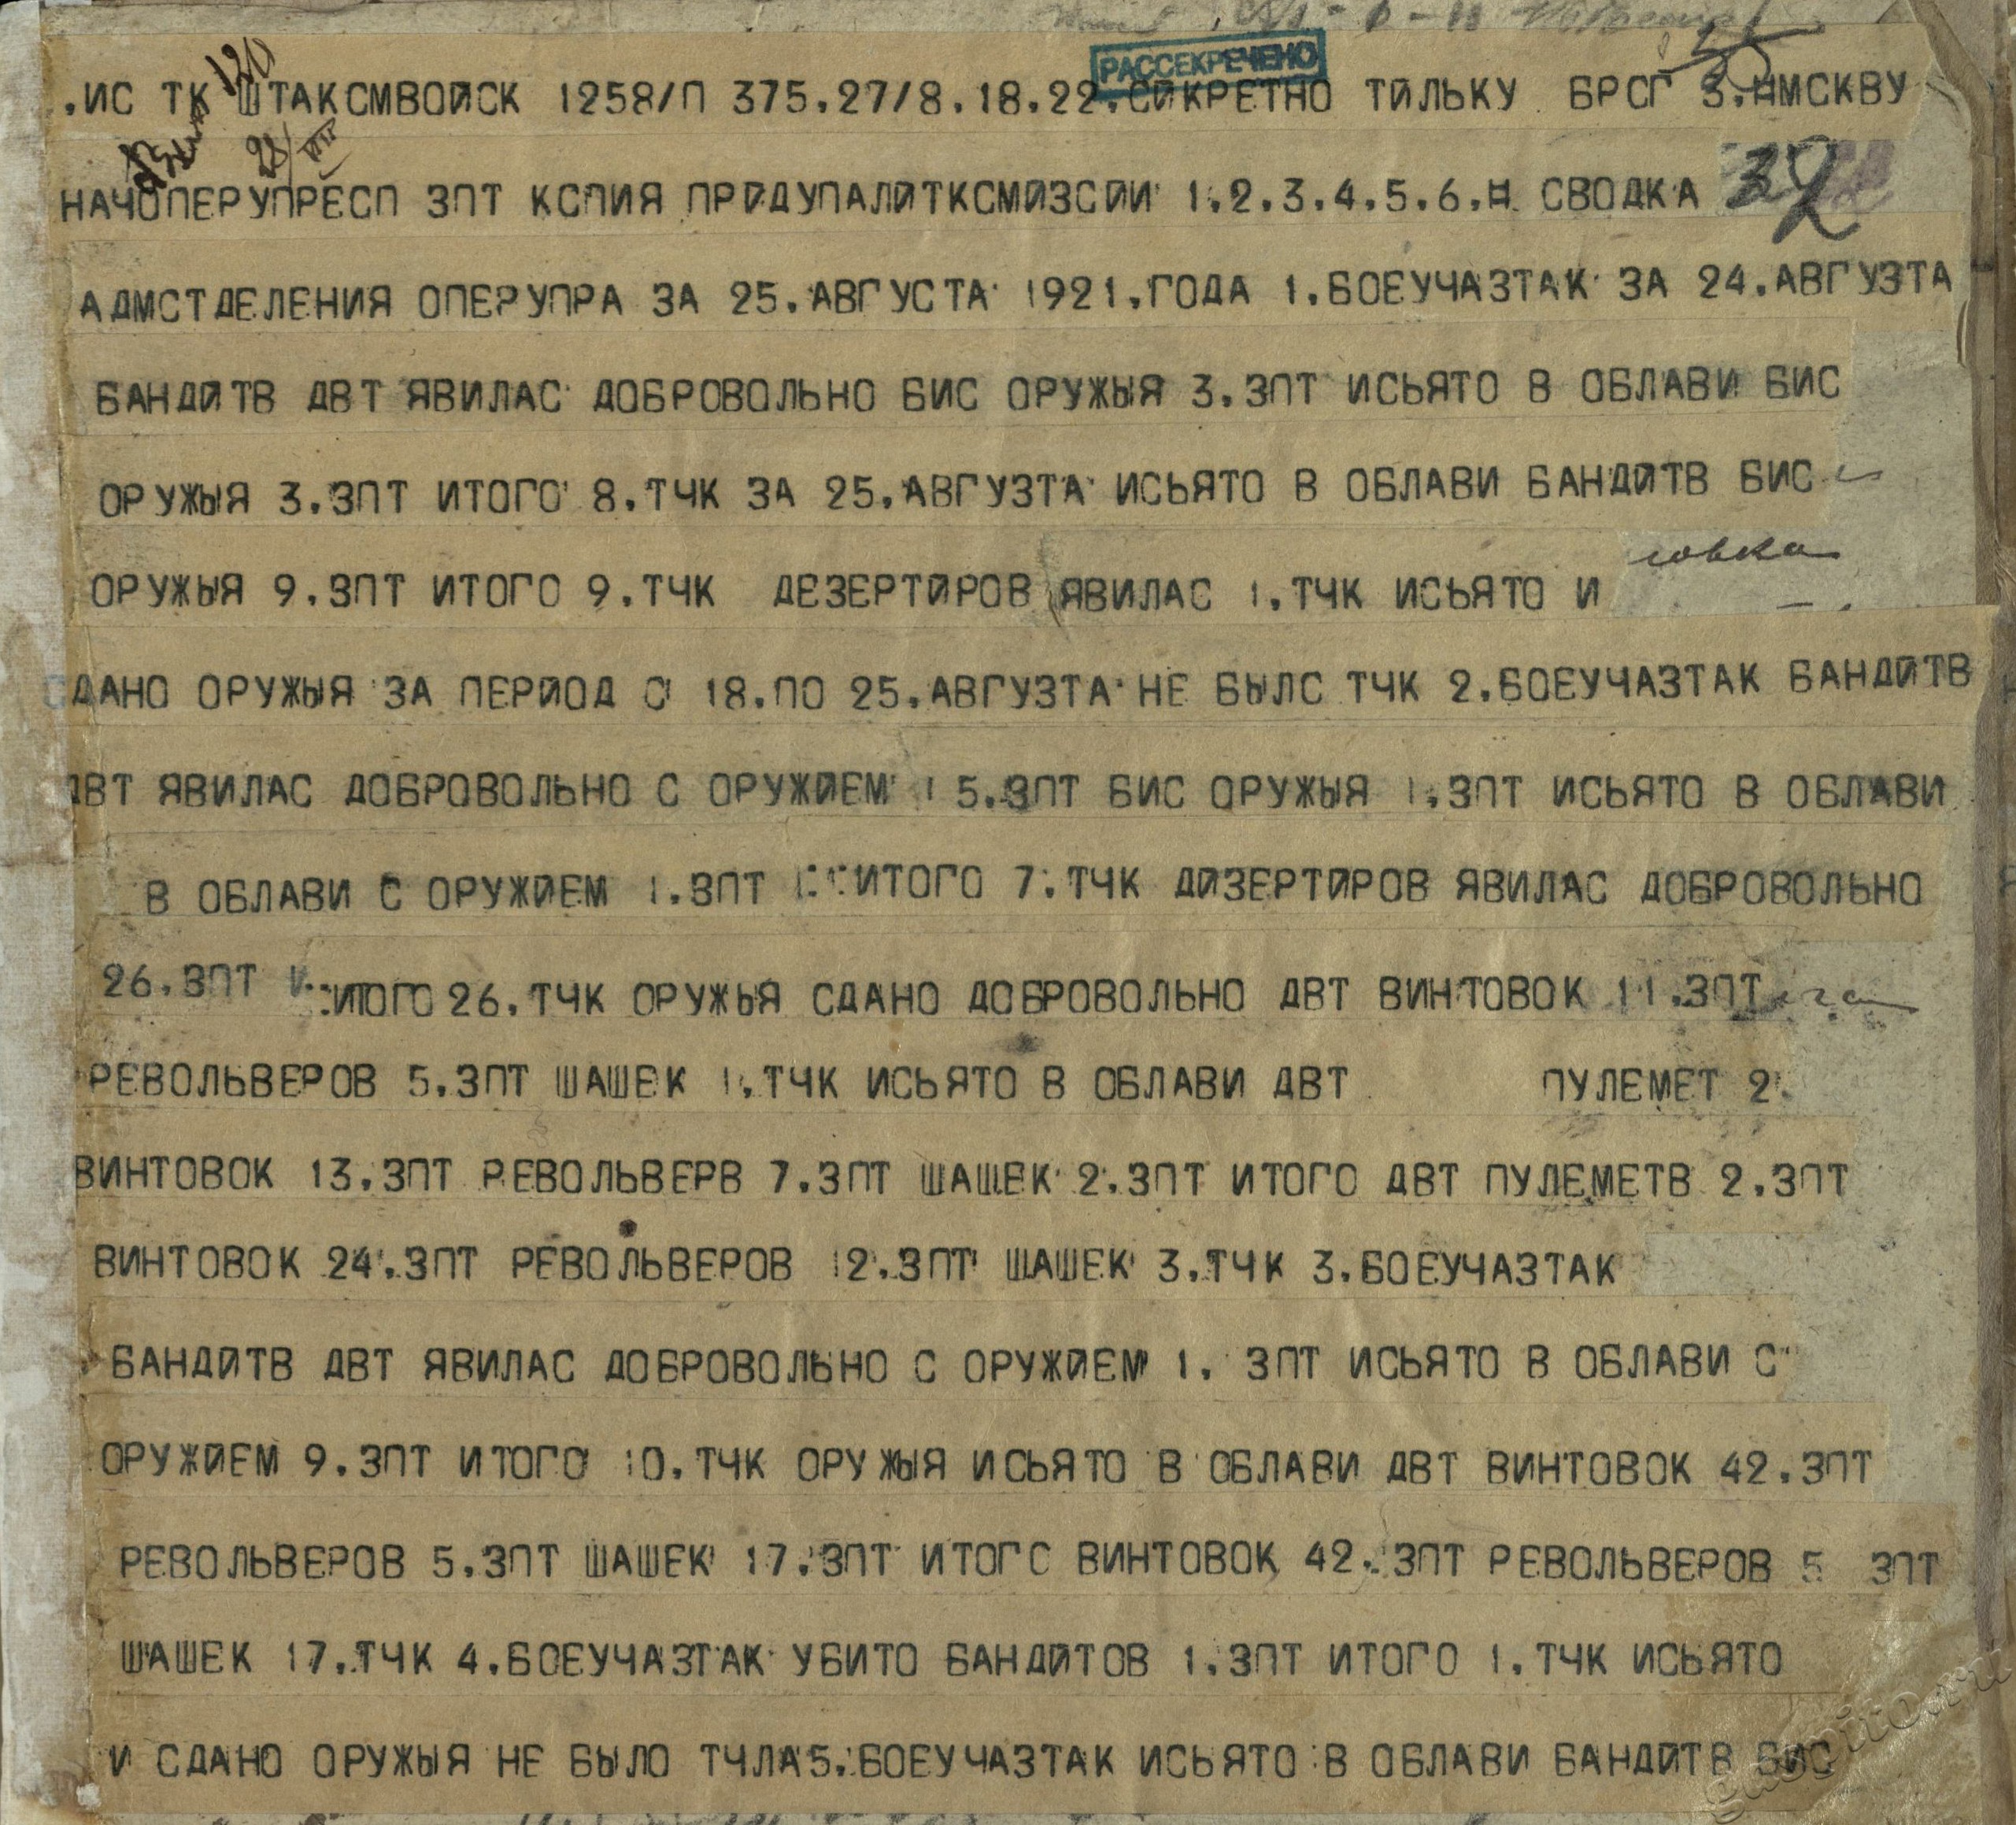 РАССЕКРЕЧЕНО
.ИС ТК ШТАКСМВОЙСК 1258/П 375.27/8.18.22.СЙКРЕТНО ТЙЛЬКУ БРСГ 3.НМСКВУ
НАЧОПЕРУПРЕСП ЗПТ КСПИЯ ПРЙДУПАЛЙТКСМЙЗСЙИ 1.2.3.4.5.6.Н СВОДКА 32
АДМСТДЕЛЕНИЯ ОПЕРУПРА ЗА 25.АВГУСТА 1921.ГОДА 1.БОЕУЧАЗТАК ЗА 24.АВГУЗТА
БАНДЙТВ ДВТ ЯВИЛАС ДОБРОВОЛЬНО БИС ОРУЖЫЯ 3.ЗПТ ИСЬЯТО В ОБЛАВИ БИС
ОРУЖЫЯ 3.ЗПТ ИТОГО 8.ТЧК ЗА 25.АВГУЗТА ИСЬЯТО В ОБЛАВИ БАНДЙТВ БИС
ОРУЖЫЯ 9.ЗПТ ИТОГО 9.ТЧК ДЕЗЕРТЙРОВ ЯВИЛАС 1.ТЧК ИСЬЯТО И
СДАНО ОРУЖЫЯ ЗА ПЕРЙОД С 18.ПО 25.АВГУЗТА НЕ БЫЛС ТЧК 2.БОЕУЧАЗТАК БАНДЙТВ
ДВТ ЯВИЛАС ДОБРОВОЛЬНО С ОРУЖЙЕМ 5.ЗПТ БИС ОРУЖЫЯ 1.ЗПТ ИСЬЯТО В ОБЛАВИ
В ОБЛАВИ С ОРУЖЙЕМ 1.ЗПТ ИТОГО 7.ТЧК ДЙЗЕРТЙРОВ ЯВИЛАС ДОБРОВОЛЬНО
26.ЗПТ И ИТОГО 26.ТЧК ОРУЖЬЯ СДАНО ДОБРОВОЛЬНО ДВТ ВИНТОВОК 11.ЗПТ
РЕВОЛЬВЕРОВ 5.ЗПТ ШАШЕК 1.ТЧК ИСЬЯТО В ОБЛАВИ ДВТ ПУЛЕМЕТ 2.
ВИНТОВОК 13.ЗПТ РЕВОЛЬВЕРВ 7.ЗПТ ШАШЕК 2.ЗПТ ИТОГО ДВТ ПУЛЕМЕТВ 2.ЗПТ
ВИНТОВОК 24.ЗПТ РЕВОЛЬВЕРОВ 12.ЗПТ ШАШЕК 3.ТЧК 3.БОЕУЧАЗТАК
БАНДЙТВ ДВТ ЯВИЛАС ДОБРОВОЛЬНО С ОРУЖЙЕМ 1. ЗПТ ИСЬЯТО В ОБЛАВИ С
ОРУЖЙЕМ 9.ЗПТ ИТОГО 10.ТЧК ОРУЖЫЯ ИСЬЯТО В ОБЛАВИ ДВТ ВИНТОВОК 42.ЗПТ
РЕВОЛЬВЕРОВ 5.ЗПТ ШАШЕК 17.ЗПТ ИТОГС ВИНТОВОК 42.ЗПТ РЕВОЛЬВЕРОВ 5 ЗПТ
ШАШЕК 17.ТЧК 4.БОЕУЧАЗТАК УБИТО БАНДЙТОВ 1.ЗПТ ИТОГО 1.ТЧК ИСЬЯТО
И СДАНО ОРУЖЫЯ НЕ БЫЛО ТЧЛА5.БОЕУЧАЗТАК ИСЬЯТО В ОБЛАВИ БАНДЙТВ БИС
gaspito.ru